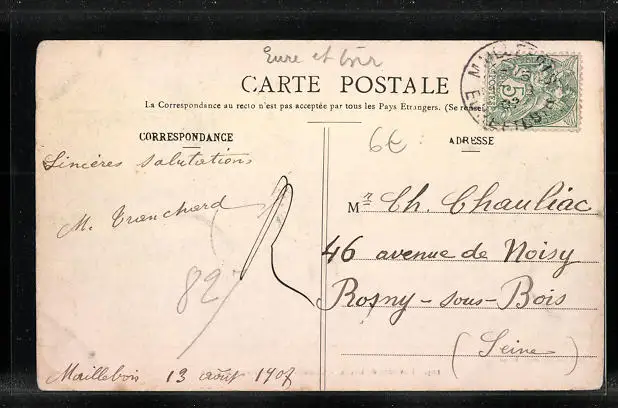 Eure et Loir
CARTE POSTALE
La Correspondance au recto n'est pas acceptée par tous les Pays Etrangers. (Se rensei
CORRESPONDANCE
6€
ADRESSE
Sincères salutations
M. Tranchard
Mr Ch. Chauliac
46 avenue de Noisy
Rosny-sous-Bois
(Seine)
82
Maillebois 13 août 1907